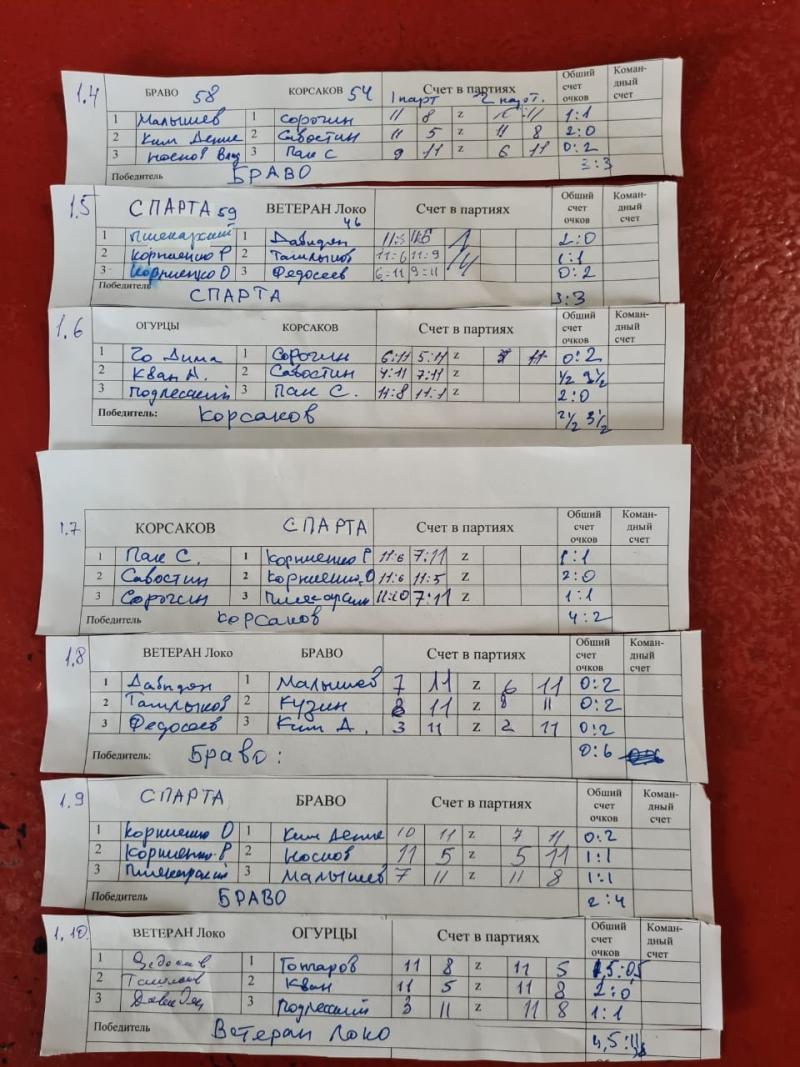 1.4 БРАВО 58 КОРСАКОВ 54 Счет в партиях Общий счет очков Коман-дный счет
1 парт
1 Малышев 1 Сорочин 11 8 z 11 1:1
2 Ким Дение 2 Савостин 11 5 z 11 8 2:0
3 Носков Влад 3 Пак С 9 11 z 6 11 0:2
Победитель БРАВО 3:3
1.5 СПАРТА 59 ВЕТЕРАН Локо 46 Счет в партиях Общий счет очков Коман-дный счет
1 Пшекарский 1 Давидян 2:0
2 Корниенко Р 2 Ташлыков 11:6 11:9 1:1
3 Корниенко О 3 Федосеев 6:11 9:11 0:2
Победитель СПАРТА 3:3
1.6 ОГУРЦЫ КОРСАКОВ Счет в партиях Общий счет очков Коман-дный счет
1 Го Дима 1 Сорочин 6:11 5:11 z 11 0:2
2 Кван А. 2 Савостин 4:11 7:11 z
3 Подлесский 3 Пак С. 11:8 z 2:0
Победитель: Корсаков 2 1/2 3 1/2
1.7 КОРСАКОВ СПАРТА Счет в партиях Общий счет очков Коман-дный счет
1 Пак С. 1 Корниенко Р 11:6 7:11 z 1:1
2 Савостин 2 Корниенко О 11:6 11:5 z 2:0
3 Сорочин 3 Пшекарский 11:10 7:11 z 1:1
Победитель Корсаков 4:2
1.8 ВЕТЕРАН Локо БРАВО Счет в партиях Общий счет очков Коман-дный счет
1 Давидян 1 Малышев 7 11 z 6 11 0:2
2 Ташлыков 2 Кузин 8 11 z 8 11 0:2
3 Федосеев 3 Ким Д. 3 11 z 2 11 0:2
Победитель: Браво: 0:6
1.9 СПАРТА БРАВО Счет в партиях Общий счет очков Коман-дный счет
1 Корниенко О 1 Ким Дение 10 11 z 7 11 0:2
2 Корниенко Р 2 Носков 11 5 z 5 11 1:1
3 Пшекарский 3 Малышев 7 11 z 11 8 1:1
Победитель БРАВО 2:4
1.10. ВЕТЕРАН Локо ОГУРЦЫ Счет в партиях Общий счет очков Коман-дный счет
1 1 Гончаров 11 8 z 11 5 1,5:0,5
2 2 Кван 11 5 z 11 8 2:0
3 Давидян 3 Подлесский 3 11 z 11 8 1:1
Победитель Ветеран Локо